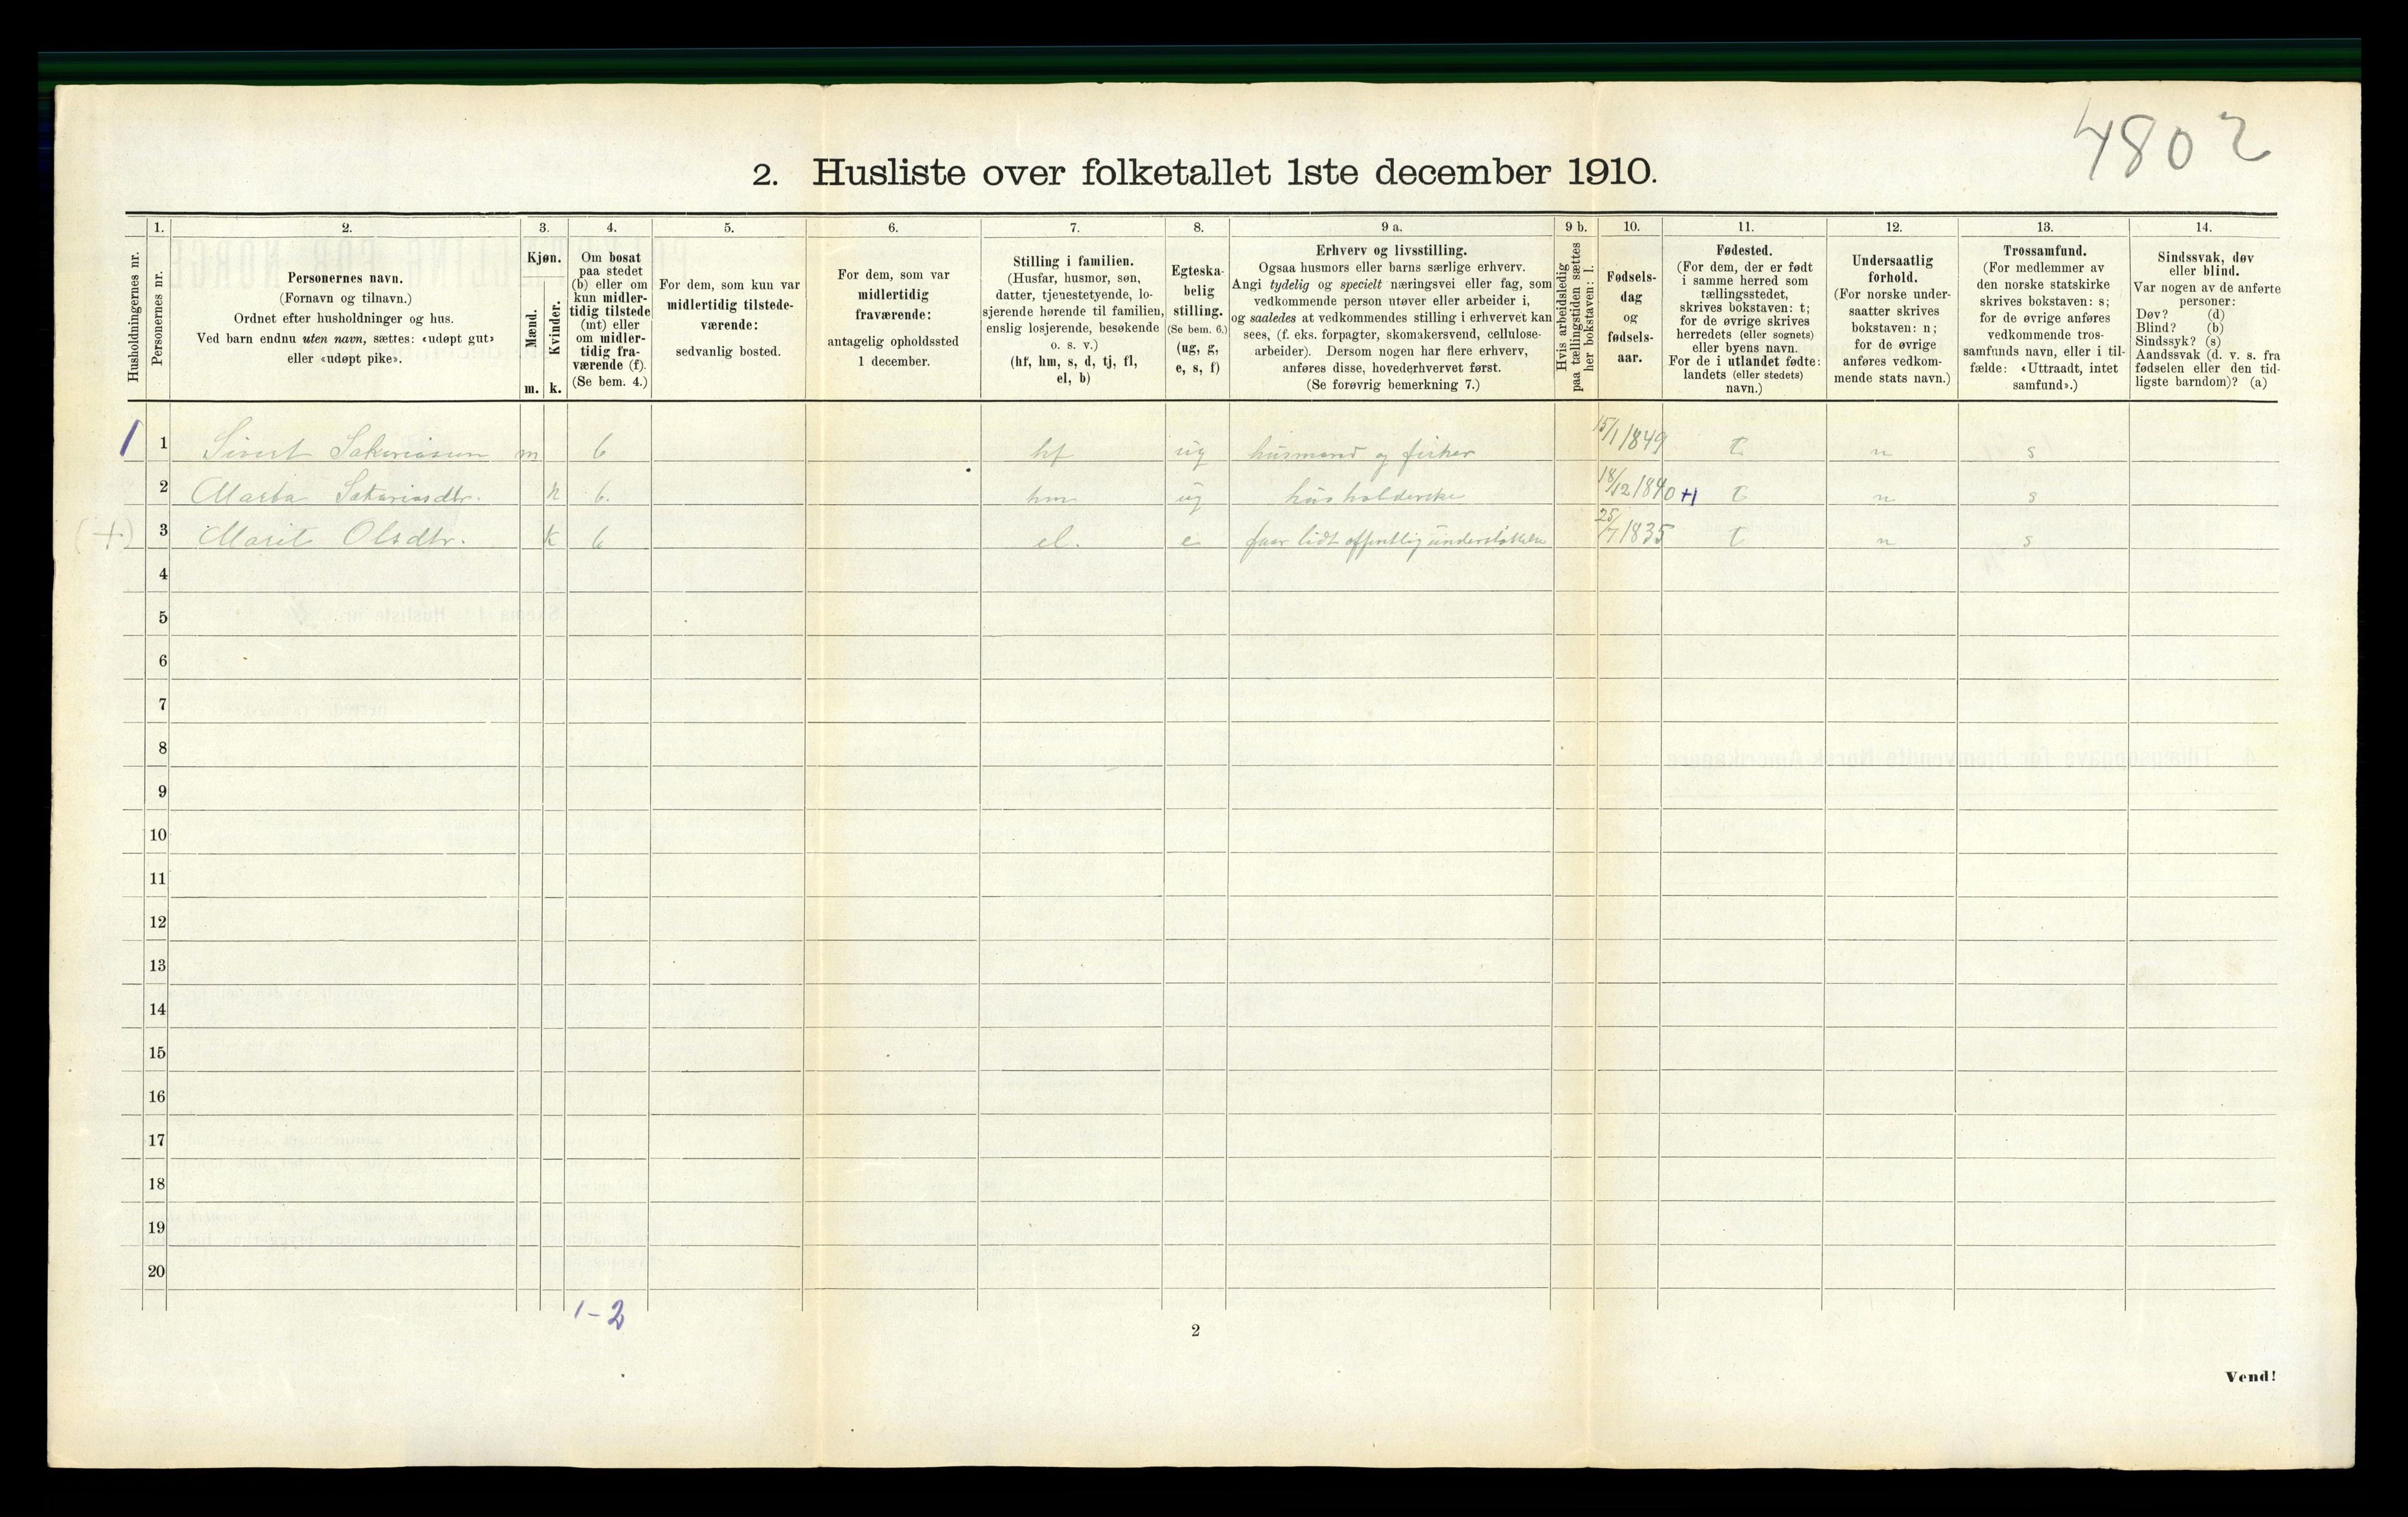 4802
2. Husliste over folketallet 1ste december 1910.
Husholdningernes nr.
1.
Personernes nr.
2.
Personernes navn.
(Fornavn og tilnavn.)
Ordnet efter husholdninger og hus.
Ved barn endnu uten navn, sættes: «udøpt gut»
eller «udøpt pike».
3.
Kjøn.
Mænd.
Kvinder.
m. k.
4.
Om bosat
paa stedet
(b) eller om
kun midler-
tidig tilstede
(mt) eller
om midler-
tidig fra-
værende (f).
(Se bem. 4.)
5.
For dem, som kun var
midlertidig tilstede-
værende:
sedvanlig bosted.
6.
For dem, som var
midlertidig
fraværende:
antagelig opholdssted
1 december.
7.
Stilling i familien.
(Husfar, husmor, søn,
datter, tjenestetyende, lo-
sjerende hørende til familien,
enslig losjerende, besøkende
o. s. v.)
(hf, hm, s, d, tj, fl,
el, b)
8.
Egteska-
belig
stilling.
(Se bem. 6.)
(ug, g,
e, s, f)
9 a.
Erhverv og livsstilling.
Ogsaa husmors eller barns særlige erhverv.
Angi tydelig og specielt næringsvei eller fag, som
vedkommende person utøver eller arbeider i,
og saaledes at vedkommendes stilling i erhvervet kan
sees, (f. eks. forpagter, skomakersvend, cellulose-
arbeider). Dersom nogen har flere erhverv,
anføres disse, hovederhvervet først.
(Se forøvrig bemerkning 7.)
9 b.
Hvis arbeidsledig
paa tællingstiden sættes
her bokstaven: l.
10.
Fødsels-
dag
og
fødsels-
aar.
11.
Fødested.
(For dem, der er født
i samme herred som
tællingsstedet,
skrives bokstaven: t;
for de øvrige skrives
herredets (eller sognets)
eller byens navn.
For de i utlandet fødte:
landets (eller stedets)
navn.)
12.
Undersaatlig
forhold.
(For norske under-
saatter skrives
bokstaven: n;
for de øvrige
anføres vedkom-
mende stats navn.)
13.
Trossamfund.
(For medlemmer av
den norske statskirke
skrives bokstaven: s;
for de øvrige anføres
vedkommende tros-
samfunds navn, eller i til-
fælde: «Uttraadt, intet
samfund».)
14.
Sindssvak, døv
eller blind.
Var nogen av de anførte
personer:
Døv? (d)
Blind? (b)
Sindssyk? (s)
Aandssvak (d. v. s. fra
fødselen eller den tid-
ligste barndom)? (a)
1 1 Sivert Sakariasen m b hf ug husmand og fisker 15/1 1849 t n s
2 Marta Sakariasdtr. k b. hm ug husholderske 18/12 1840 +1 t n s
(+) 3 Marit Olsdtr. k b el. e faar lidt offentlig understøttelse 25/7 1835 t n s
4
5
6
7
8
9
10
11
12
13
14
15
16
17
18
19
20
1-2
2
Vend!